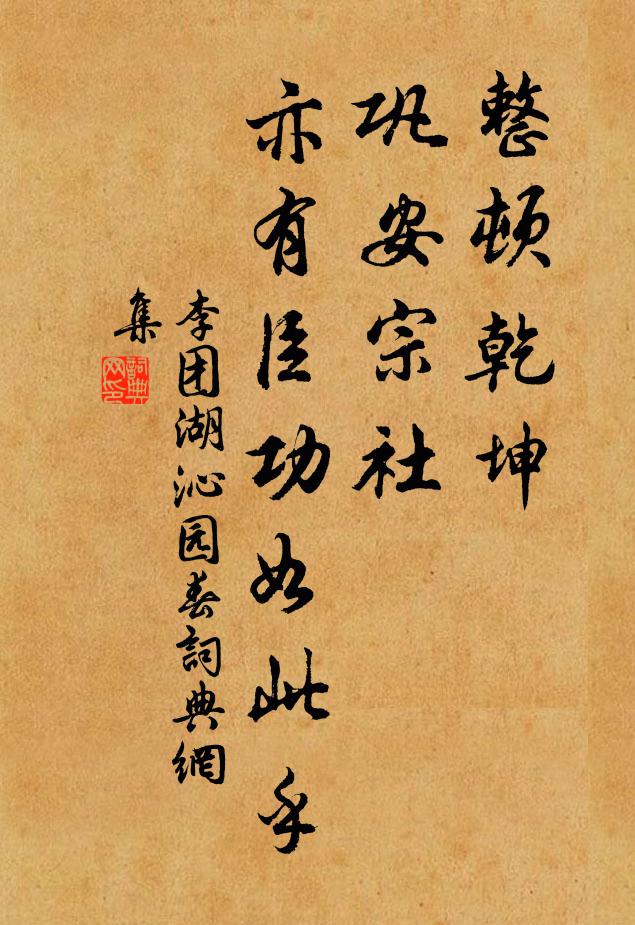 整顿乾坤
巩安宗社
亦有臣功如此乎
李团湖沁园春詞典網
集
詞典网印